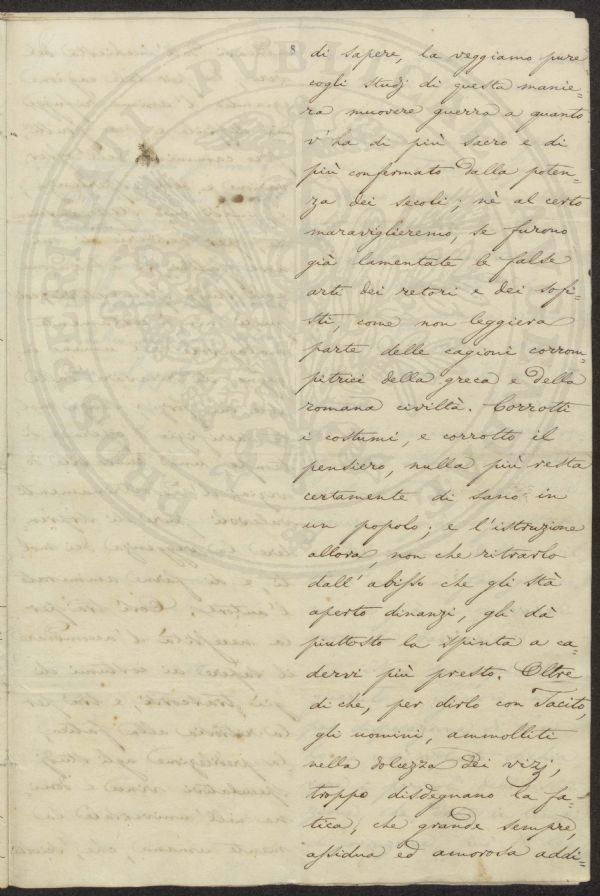 8
di sapere, la veggiamo pure
cogli studj di questa manie=
ra muovere guerra a quanto
v'ha di più sacro e di
più confermato dalla poten=
za dei secoli; nè al certo
maraviglieremo, se furono
già lamentate le false
arti dei retori e dei sofi=
sti, come non leggiera
parte delle cagioni corrom=
pitrici della greca e della
romana civiltà. Corrotti
i costumi, e corrotto il
pensiero, nulla più resta
certamente di sano in
un popolo; e l'istruzione
allora, non che ritrarlo
dall'abisso che gli stà
aperto dinanzi, gli dà
piuttosto la spinta a ca=
dervi più presto. Oltre
di che, per dirlo con Tacito,
gli uomini, ammolliti
nella dolcezza dei vizj,
troppo disdegnano la fa=
tica, che grande sempre,
assidua ed amorosa addi=